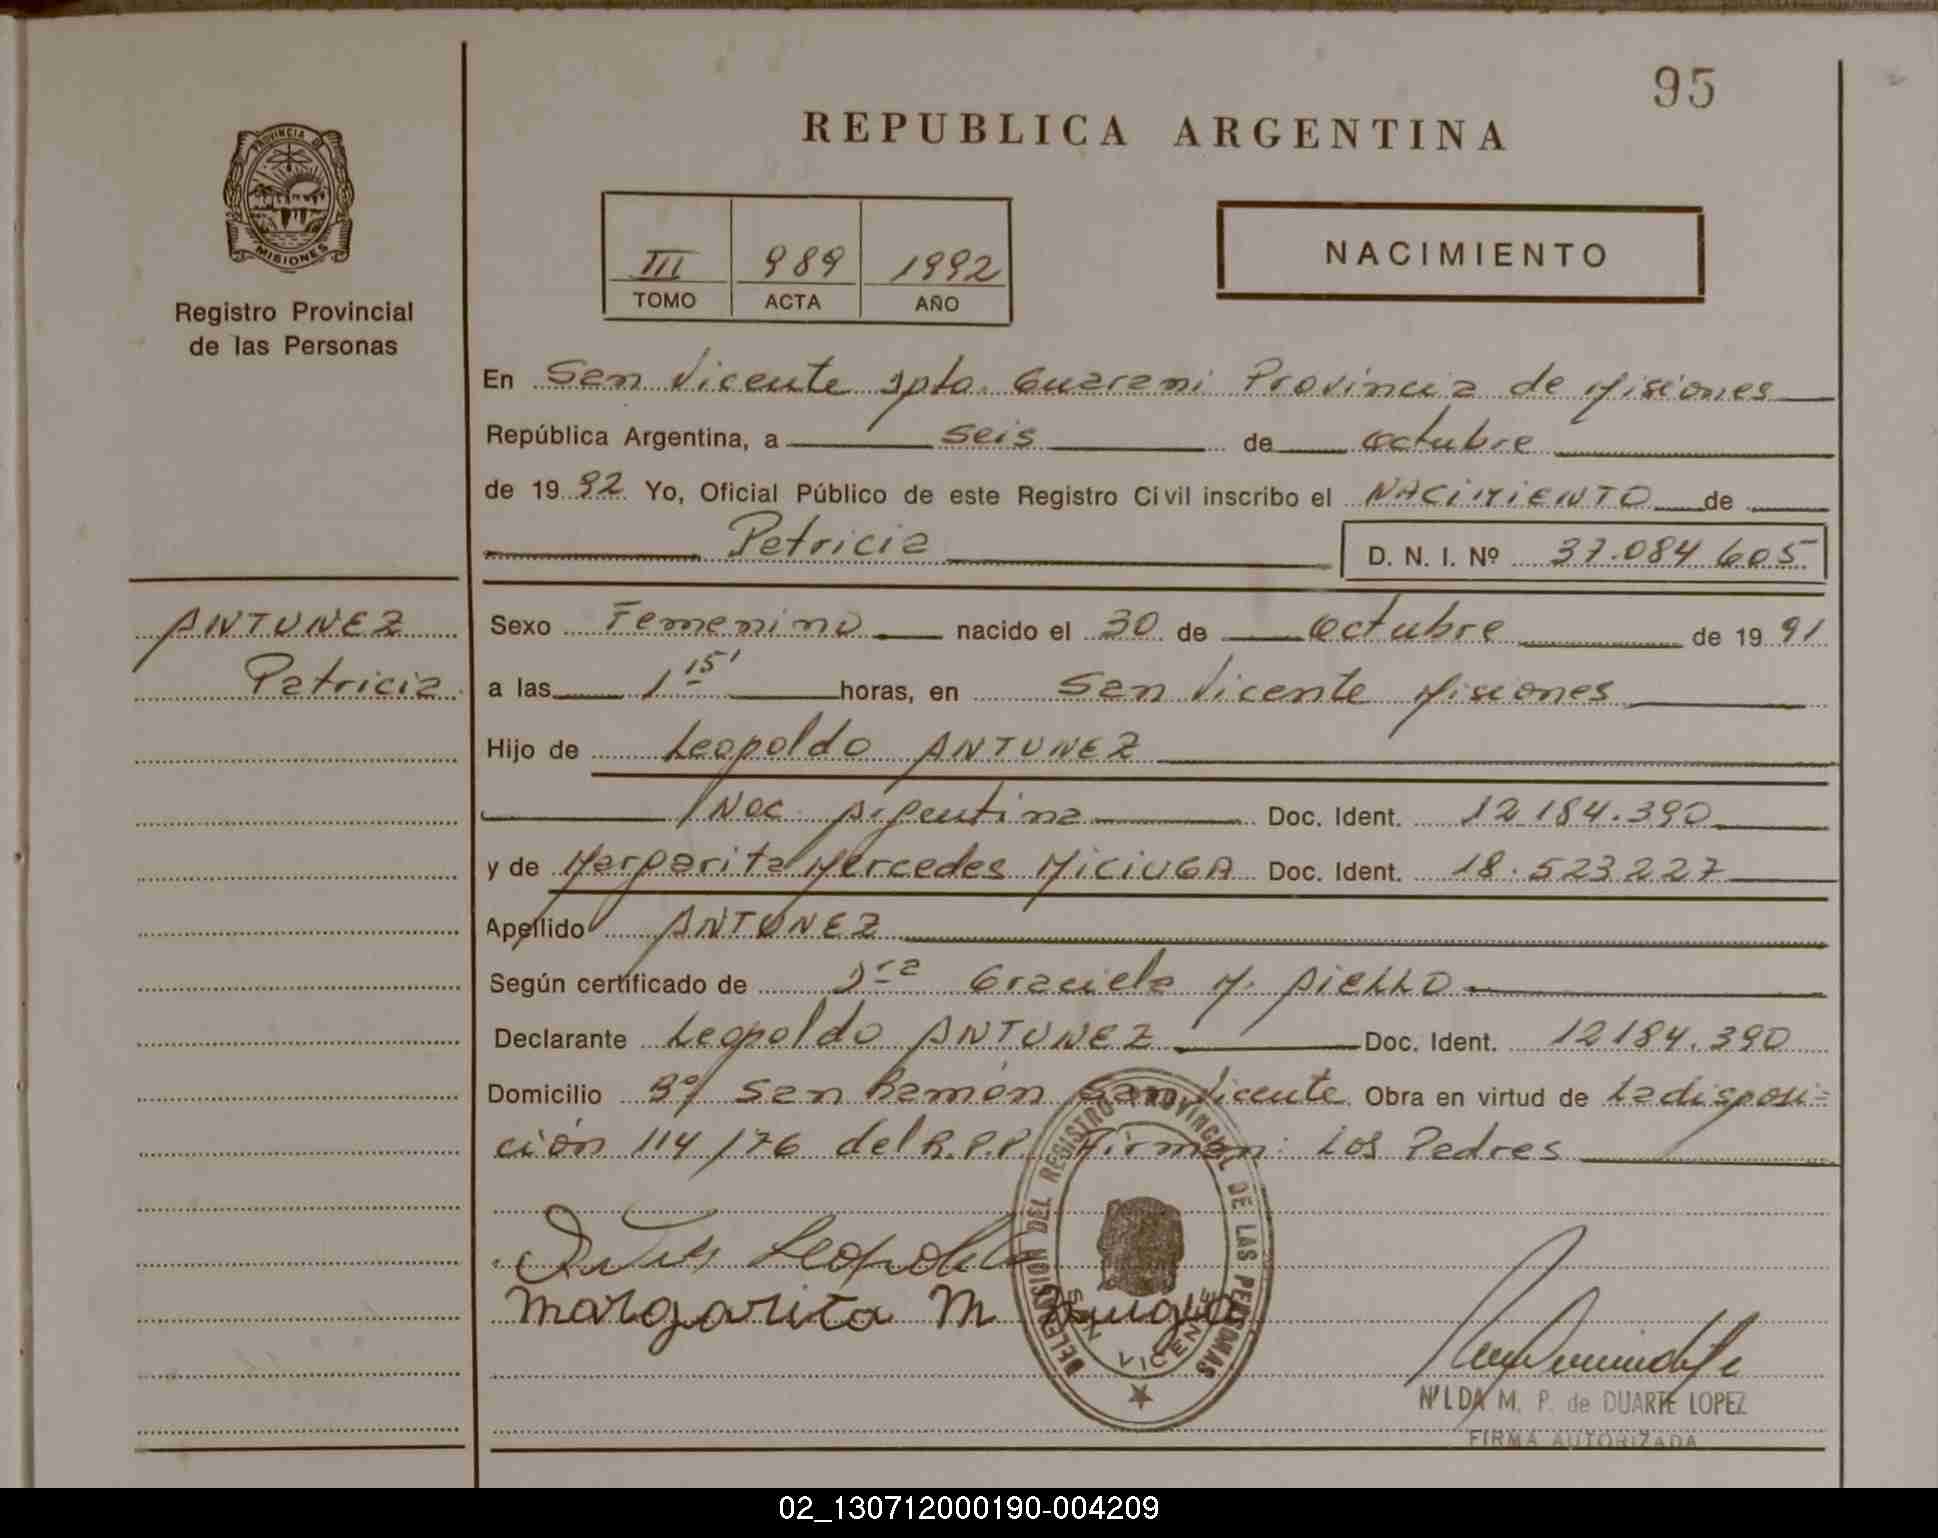 95
REPUBLICA ARGENTINA
PROVINCIA DE
MISIONES
Registro Provincial
de las Personas
III 989 1992
TOMO ACTA AÑO
NACIMIENTO
En San Vicente Dpto. Guarani Provincia de Misiones
República Argentina, a seis de octubre
de 1992 Yo, Oficial Público de este Registro Civil inscribo el NACIMIENTO de
Patricia D. N. I. Nº 37.084.605
ANTUNEZ
Patricia
Sexo Femenino nacido el 30 de octubre de 1991
a las 1 15' horas, en San Vicente Misiones
Hijo de Leopoldo ANTUNEZ
Nac. Argentina Doc. Ident. 12.184.390
y de Margarita Mercedes MICIUGA Doc. Ident. 18.523.227
Apellido ANTUNEZ
Según certificado de Dra Graciela M. AIELLO
Declarante Leopoldo ANTUNEZ Doc. Ident. 12184.390
Domicilio Bº San Ramón San Vicente Obra en virtud de La disposi=
ción 114/76 del R.P.P. Firman: Los Padres
Leopoldo
Margarita M
DELEGACION DEL REGISTRO PROVINCIAL DE LAS PERSONAS
SAN VICENTE
NILDA M. P. de DUARTE LOPEZ
FIRMA AUTORIZADA
02_130712000190-004209